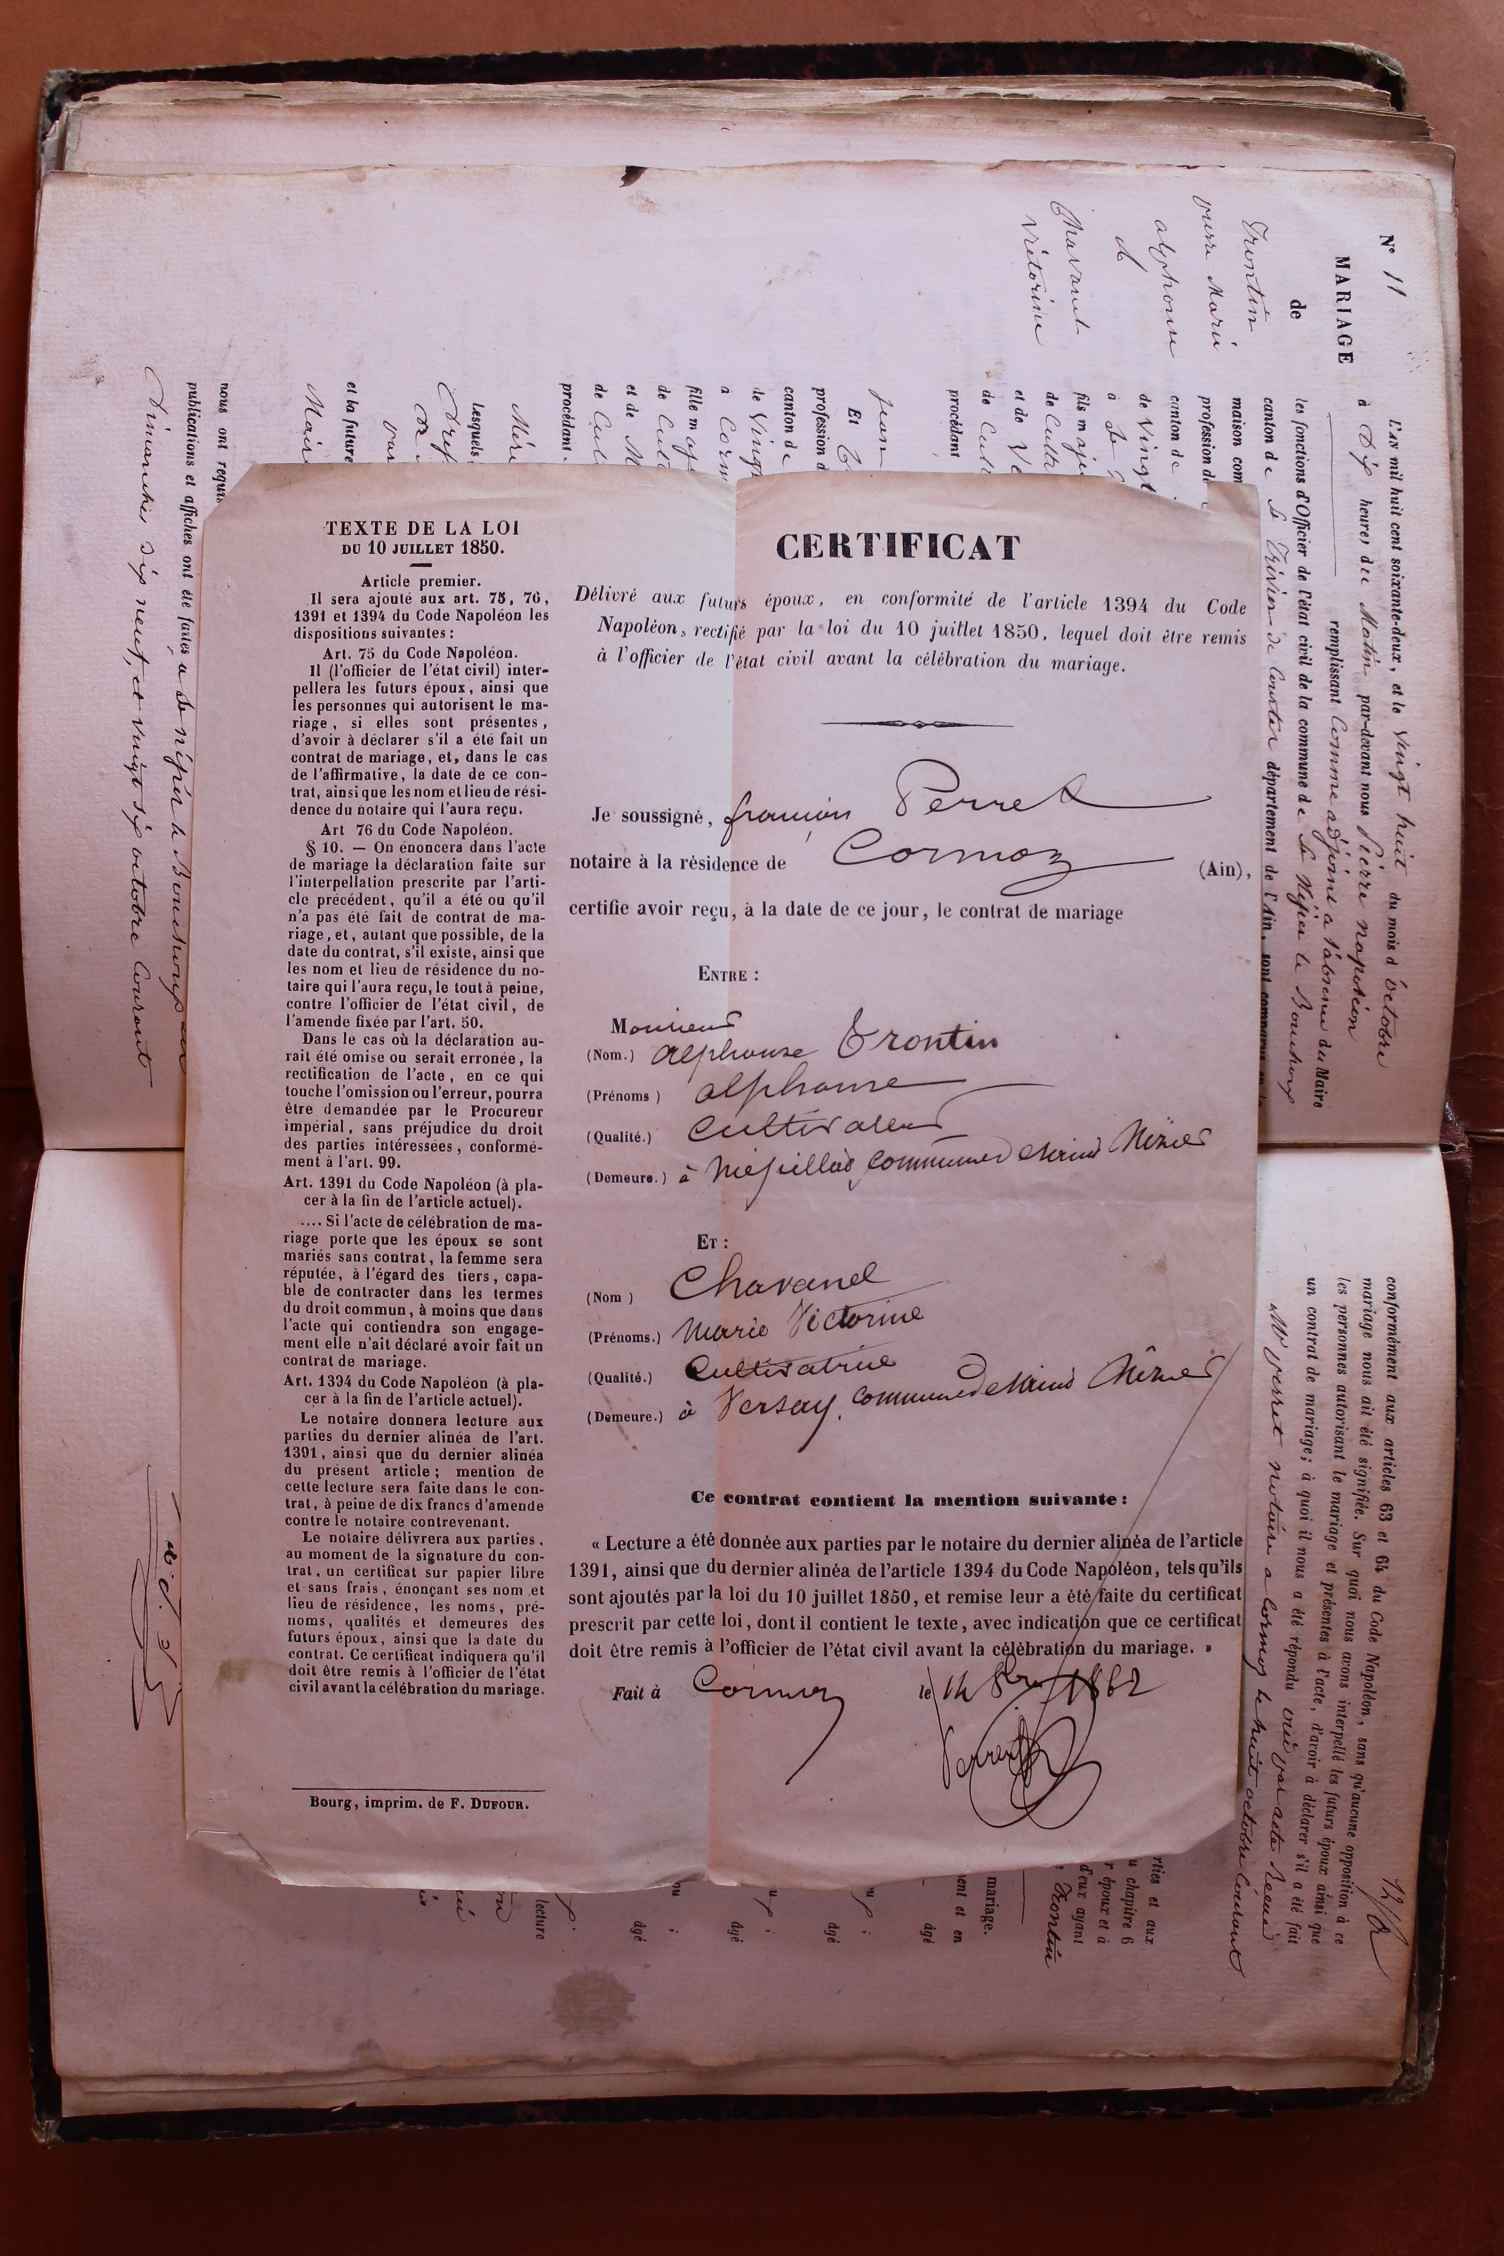 TEXTE DE LA LOI
DU 10 JUILLET 1850.
Article premier.
Il sera ajouté aux art. 75, 76,
1391 et 1394 du Code Napoléon les
dispositions suivantes :
Art. 75 du Code Napoléon.
Il (l'officier de l'état civil) inter-
pellera les futurs époux, ainsi que
les personnes qui autorisent le ma-
riage, si elles sont présentes,
d'avoir à déclarer s'il a été fait un
contrat de mariage, et, dans le cas
de l'affirmative, la date de ce con-
trat, ainsi que les nom et lieu de rési-
dence du notaire qui l'aura reçu.
Art 76 du Code Napoléon.
§ 10. — On énoncera dans l'acte
de mariage la déclaration faite sur
l'interpellation prescrite par l'arti-
cle précédent, qu'il a été ou qu'il
n'a pas été fait de contrat de ma-
riage, et, autant que possible, de la
date du contrat, s'il existe, ainsi que
les nom et lieu de résidence du no-
taire qui l'aura reçu, le tout à peine,
contre l'officier de l'état civil, de
l'amende fixée par l'art. 50.
Dans le cas où la déclaration au-
rait été omise ou serait erronée, la
rectification de l'acte, en ce qui
touche l'omission ou l'erreur, pourra
être demandée par le Procureur
impérial, sans préjudice du droit
des parties intéressées, conformé-
ment à l'art. 99.
Art. 1391 du Code Napoléon (à pla-
cer à la fin de l'article actuel).
.... Si l'acte de célébration de ma-
riage porte que les époux se sont
mariés sans contrat, la femme sera
réputée, à l'égard des tiers, capa-
ble de contracter dans les termes
du droit commun, à moins que dans
l'acte qui contiendra son engage-
ment elle n'ait déclaré avoir fait un
contrat de mariage.
Art. 1394 du Code Napoléon (à pla-
cer à la fin de l'article actuel).
Le notaire donnera lecture aux
parties du dernier alinéa de l'art.
1391, ainsi que du dernier alinéa
du présent article; mention de
cette lecture sera faite dans le con-
trat, à peine de dix francs d'amende
contre le notaire contrevenant.
Le notaire délivrera aux parties,
au moment de la signature du con-
trat, un certificat sur papier libre
et sans frais, énonçant ses nom et
lieu de résidence, les noms, pré-
noms, qualités et demeures des
futurs époux, ainsi que la date du
contrat. Ce certificat indiquera qu'il
doit être remis à l'officier de l'état
civil avant la célébration du mariage.
Bourg, imprim. de F. DUFOUR.
CERTIFICAT
Délivré aux futurs époux, en conformité de l'article 1394 du Code
Napoléon, rectifié par la loi du 10 juillet 1850, lequel doit être remis
à l'officier de l'état civil avant la célébration du mariage.
Je soussigné, françois Perret
notaire à la résidence de Cormoz (Ain),
certifie avoir reçu, à la date de ce jour, le contrat de mariage
ENTRE :
Monsieur
(Nom.) alphonse Trontin
(Prénoms) alphonse
(Qualité.) Cultivateur
(Demeure.) à commune de Saint Nizier
ET :
(Nom) Chavanel
(Prénoms.) Marie Victorine
(Qualité.) Cultivatrice
(Demeure.) à Versay, commune de Saint Nizier
Ce contrat contient la mention suivante :
« Lecture a été donnée aux parties par le notaire du dernier alinéa de l'article
1391, ainsi que du dernier alinéa de l'article 1394 du Code Napoléon, tels qu'ils
sont ajoutés par la loi du 10 juillet 1850, et remise leur a été faite du certificat
prescrit par cette loi, dont il contient le texte, avec indication que ce certificat
doit être remis à l'officier de l'état civil avant la célébration du mariage. »
Fait à Cormoz le 14 8bre 1862
Perret
N° 11
MARIAGE
de
Trontin
pierre Marie
alphonse
&
Chavanel
Victorine
L'AN mil huit cent soixante-deux, et le Vingt huit du mois d'octobre
à Dix heures du Matin par-devant nous Pierre napoléon
remplissant Comme adjoint a l'absence du Maire
les fonctions d'Officier de l'état civil de la commune de St Nizier le Bouchoux
canton de St Trivier de Courtes département de l'Ain, sont comparus en la
maison com
profession de
canton de
de Vingt
à St
fils maje
de Cult
et de
de Cult
procédant
jean
Et
profession d
canton de
de Vingt
à Corm
fille maje
de Cult
et de M
de Cul
procédant
Mère
Lesquels
par
et la future
Mair
nous ont requis
publications et affiches ont été faites a St nizier le Bouchoux
Dimanches dix neuf, et vingt six octobre Courant
conformément aux articles 63 et 64 du Code Napoléon, sans qu'aucune opposition à ce
mariage nous ait été signifiée. Sur quoi nous avons interpellé les futurs époux ainsi que
les personnes autorisant le mariage et présentes à l'acte, d'avoir à déclarer s'il a été fait
un contrat de mariage; à quoi il nous a été répondu oui par acte Recu
Mr perret notaire a Cormoz le huit octobre Courant
rties et aux
u chapitre 6
r époux et à
d'eux ayant
Trontin
mariage.
ent et en
âgé
âgé
âgé
âgé
lecture